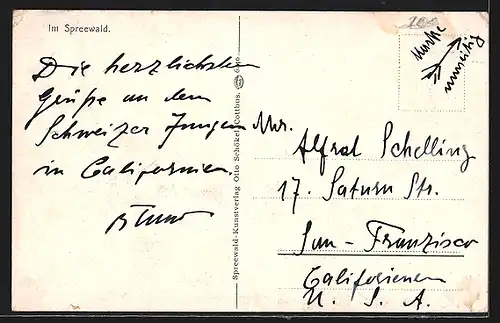 Im Spreewald.
200
Marke
umseitig
Die herzlichsten
Grüße an den
Schweizer Jungen
in Californien.
Spreewald-Kunstverlag Otto Schöker, Cottbus.
Mr.
Alfrat Schelling
17. Saturn Str.
San-Franzisco
Californien
U. S. A.